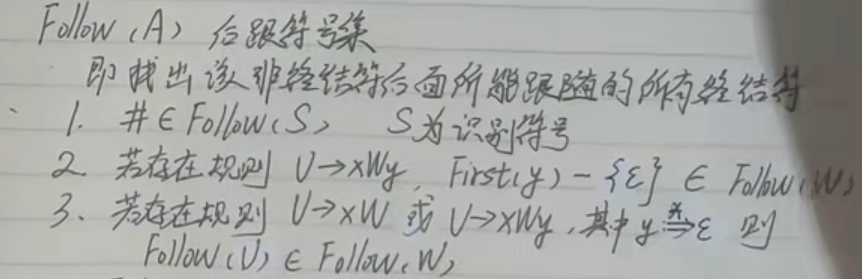 Follow(A) 后跟符号集
即找出该非终结符后面所能跟随的所有终结符
1. #∈Follow(S) S为识别符号
2. 若存在规则 U→xWy, First(y)-{ε} ∈ Follow(W)
3. 若存在规则 U→xW 或 U→xWy,其中 y⇒*ε 则
Follow(U) ∈ Follow(W)